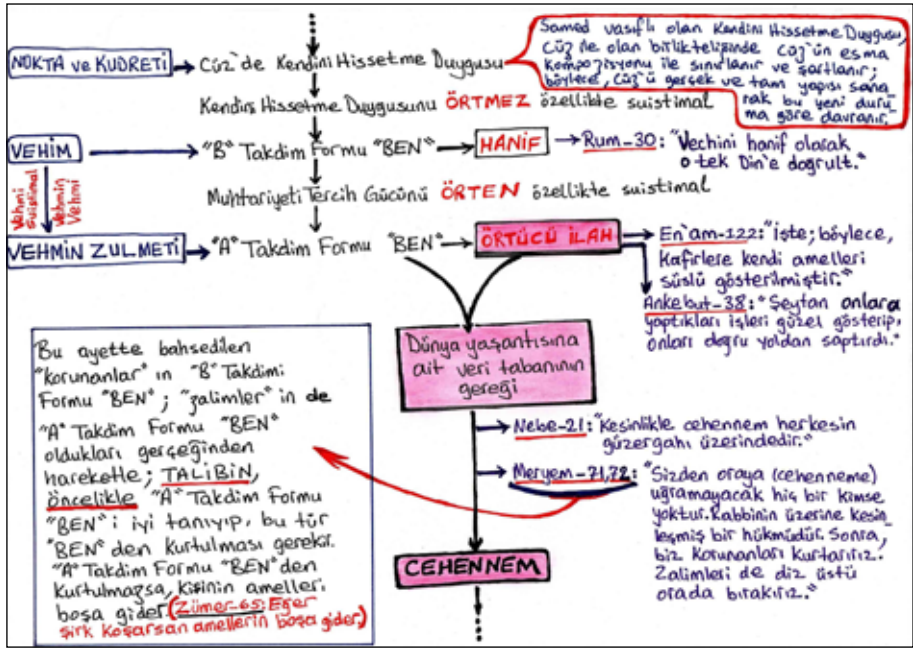 NOKTA ve KUDRETİ
Cüz'de Kendini Hissetme Duygusu
Samed vasıflı olan Kendini Hissetme Duygusu,
Cüz ile olan birlikteliğinde Cüz'ün esma
kompozisyonu ile sınırlanır ve şartlanır;
böylece, Cüz'ü gerçek ve tam yapısı sana
rak bu yeni duru
ma göre davranır."
Kendini Hissetme Duygusunu ÖRTMEZ özellikte suistimal
VEHİM
"B" Takdim Formu "BEN"
HANİF
Rum-30: "Vechini hanif olarak
o tek Din'e doğrult."
Vehmi
Suistimal
Vehmin
Vehmi
Muhtariyeti Tercih Gücünü ÖRTEN özellikte suistimal
VEHMİN ZULMETİ
"A" Takdim Formu "BEN"
ÖRTÜCÜ İLAH
En'am-122: "İşte; böylece,
Kafirlere kendi amelleri
süslü gösterilmiştir."
Ankebut-38: "Şeytan onlara
yaptıkları işleri güzel gösterip,
onları doğru yoldan saptırdı."
Dünya yaşantısına
ait veri tabanının
gereği
Nebe-21: "Kesinlikle cehennem herkesin
güzergahı üzerindedir."
Meryem-71,72: "Sizden oraya (cehenneme)
uğramayacak hiç bir kimse
yoktur. Rabbinin üzerine kesin
leşmiş bir hükmüdür. Sonra,
biz Korunanları kurtarırız.
Zalimleri de diz üstü
orada bırakırız."
CEHENNEM
Bu ayette bahsedilen
"korunanlar"ın "B" Takdimi
Formu "BEN"; "zalimler"in de
"A" Takdim Formu "BEN"
oldukları gerçeğinden
hareketle; TALİBİN,
öncelikle "A" Takdim Formu
"BEN"i iyi tanıyıp, bu tür
"BEN"den kurtulması gerekir.
"A" Takdim Formu "BEN"den
kurtulmazsa, kişinin amelleri
boşa gider. (Zümer-65: Eğer
şirk koşarsan amellerin boşa gider.)